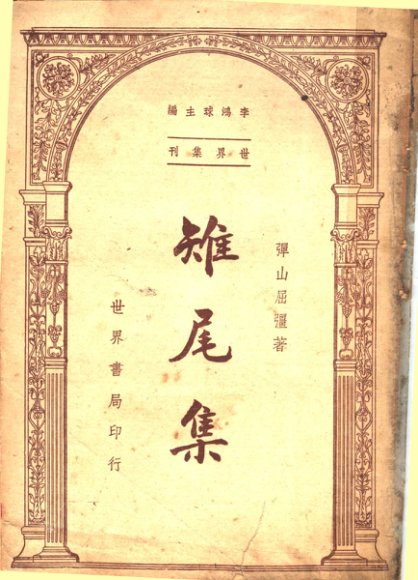 李鴻球主編
世界集刊
彈山屈彊著
雉尾集
世界書局印行